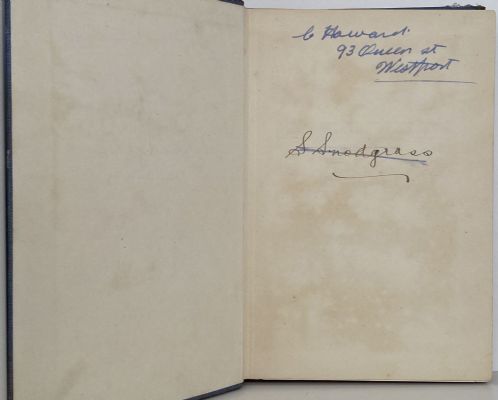 C Howard.
93 Queen st
Westport
S Snodgrass